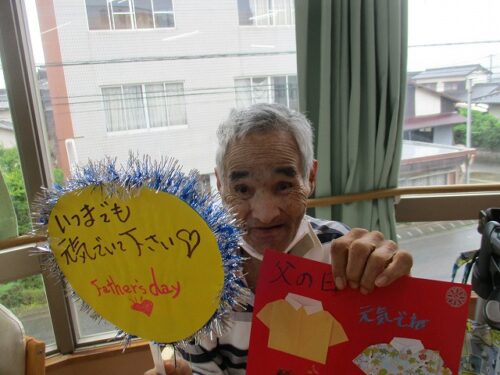 いつまでも
元気でいて下さい♡
Father's day
父の日
元気でね